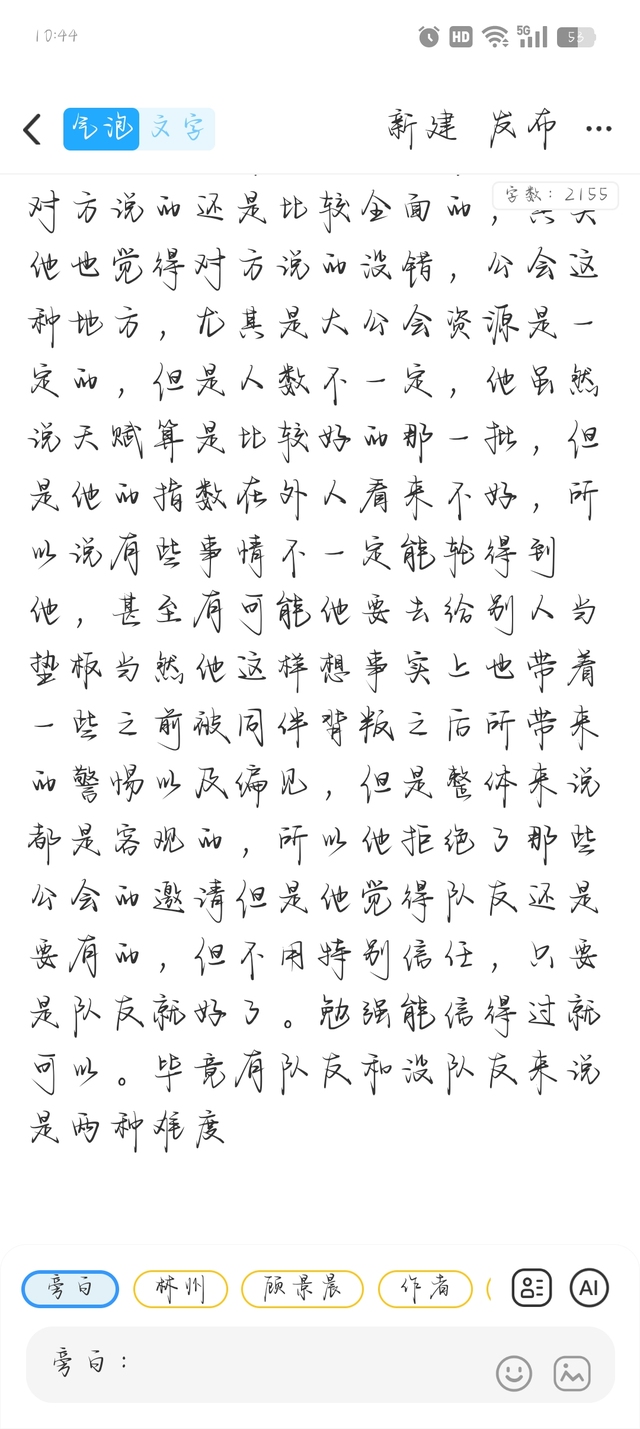 10:44
HD
5G
53
气泡 文字
新建 发布
字数：2155
对方说的还是比较全面的，其实
他也觉得对方说的没错，公会这
种地方，尤其是大公会资源是一
定的，但是人数不一定，他虽然
说天赋算是比较好的那一批，但
是他的指数在外人看来不好，所
以说有些事情不一定能轮得到
他，甚至有可能他要去给别人当
垫板当然他这样想事实上也带着
一些之前被同伴背叛之后所带来
的警惕以及偏见，但是整体来说
都是客观的，所以他拒绝了那些
公会的邀请但是他觉得队友还是
要有的，但不用特别信任，只要
是队友就好了。勉强能信得过就
可以。毕竟有队友和没队友来说
是两种难度
旁白
林州
顾景晨
作者
AI
旁白：